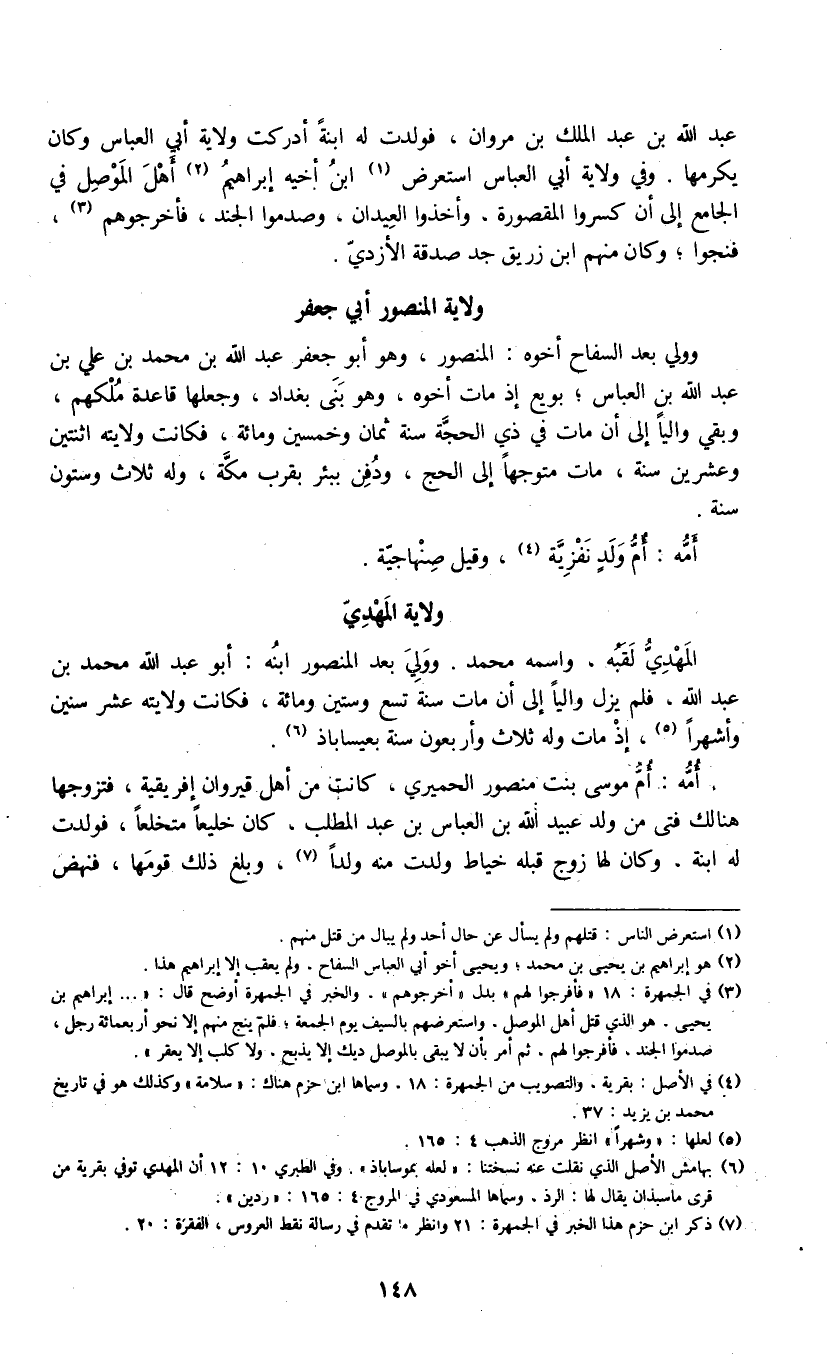 عبد الله بن عبد الملك بن مروان ، فولدت له ابنةً أدركت ولاية أبي العباس وكان
يكرمها . وفي ولاية أبي العباس استعرض (١) ابنُ أخيه إبراهيمُ (٢) أَهْلَ المَوْصِل في
الجامع إلى أن كسروا المقصورة . وأخذوا العِيدان ، وصدموا الجند ، فأخرجوهم (٣) ،
فنجوا ؛ وكان منهم ابن زريق جد صدقة الأزديّ .
ولاية المنصور أبي جعفر
وولي بعد السفاح أخوه : المنصور ، وهو أبو جعفر عبد الله بن محمد بن علي بن
عبد الله بن العباس ؛ بويع إذ مات أخوه ، وهو بَنَى بغداد ، وجعلها قاعدة مُلْكهم ،
وبقي والياً إلى أن مات في ذي الحجَّة سنة ثمان وخمسين ومائة ، فكانت ولايته اثنتين
وعشرين سنة ، مات متوجهاً إلى الحج ، ودُفِن ببئر بقرب مكَّة ، وله ثلاث وستون
سنة .
أمُّه : أُمُّ وَلَدٍ نَفْزِيَّة (٤) ، وقيل صِنْهاجيّة .
ولاية المَهْدِيّ
المَهْدِيُّ لَقَبُه . واسمه محمد . ووَلِيَ بعد المنصور ابنُه : أبو عبد الله محمد بن
عبد الله . فلم يزل والياً إلى أن مات سنة تسع وستين ومائة ، فكانت ولايته عشر سنين
وأشهراً (٥) ، إذْ مات وله ثلاث وأربعون سنة بعيساباذ (٦) .
أُمُّه : أُمُّ موسى بنت منصور الحميري ، كانت من أهل قيروان إفريقية ، فتزوجها
هنالك فتى من ولد عبيد الله بن العباس بن عبد المطلب . كان خليعاً متخلعاً ، فولدت
له ابنة . وكان لها زوج قبله خياط ولدت منه ولداً (٧) ، وبلغ ذلك قومَها ، فنهض
(١) استعرض الناس : قتلهم ولم يسأل عن حال أحد ولم يبال من قتل منهم .
(٢) هو إبراهيم بن يحيى بن محمد ؛ ويحيى أخو أبي العباس السفاح . ولم يعقب إلا إبراهيم هذا .
(٣) في الجمهرة : ١٨ « فأفرجوا لهم » بدل « أخرجوهم » . والخبر في الجمهرة أوضح قال : « ... إبراهيم بن
يحيى . هو الذي قتل أهل الموصل . واستعرضهم بالسيف يوم الجمعة ؛ فلم ينج منهم إلا نحو أربعمائة رجل ،
صدموا الجند . فأفرجوا لهم . ثم أمر بأن لا يبقى بالموصل ديك إلا يذبح . ولا كلب إلا يعقر » .
(٤) في الأصل : بقرية . والتصويب من الجمهرة : ١٨ . وسماها ابن حزم هناك : « سلامة » وكذلك هو في تاريخ
محمد بن يزيد : ٣٧ .
(٥) لعلها : « وشهراً » انظر مروج الذهب ٤ : ١٦٥ .
(٦) بهامش الأصل الذي نقلت عنه نسختنا : « لعله بموساباذ » . وفي الطبري ١٠ : ١٢ أن المهدي توفي بقرية من
قرى ماسبذان يقال لها : الرذ . وسماها المسعودي في المروج ٤ : ١٦٥ : « ردين » .
(٧) ذكر ابن حزم هذا الخبر في الجمهرة : ٢١ وانظر ما تقدم في رسالة نقط العروس ، الفقرة : ٢٠ .
١٤٨